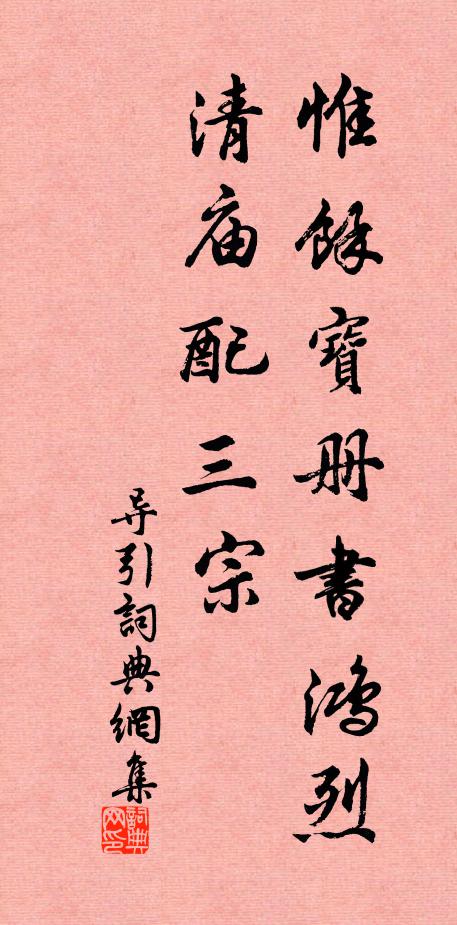 惟餘寶册書鴻烈
清庙配三宗
导引詞典網集
詞典
网印